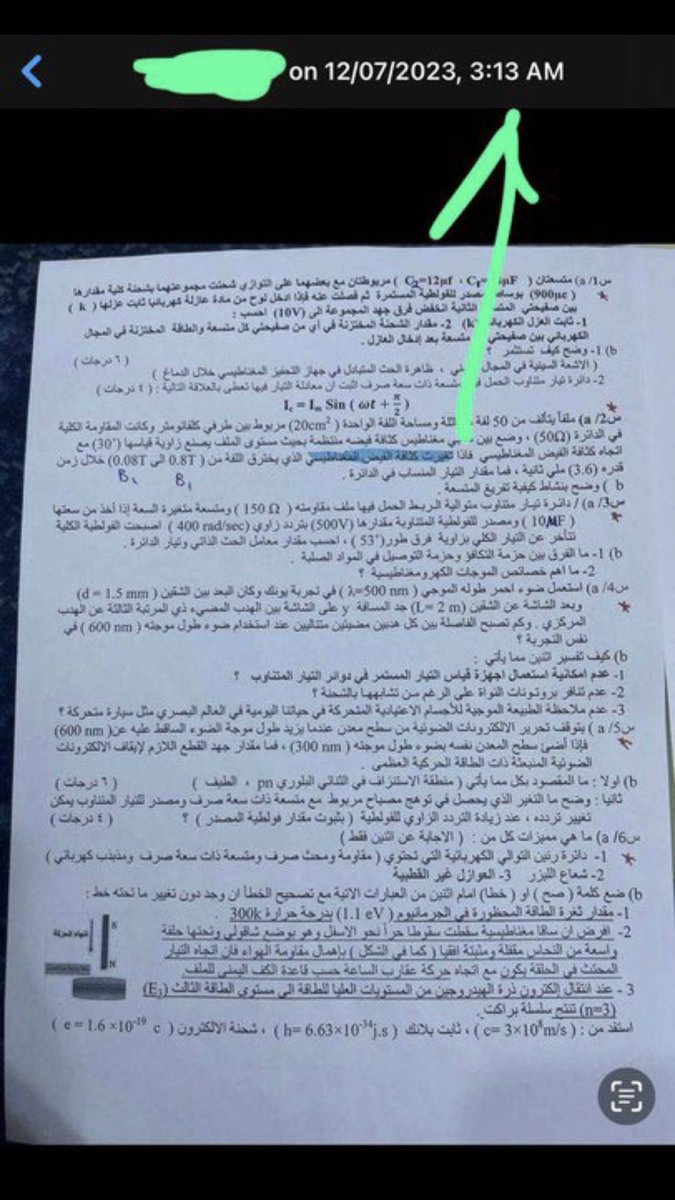 on 12/07/2023, 3:13 AM
س1/ a) متسعتان ( C₁= μF ، C₂=12μf ) مربوطتان مع بعضهما على التوازي شحنت مجموعتهما بشحنة كلية مقدارها
(900μc) بوساطة مصدر للفولطية المستمرة ثم فصلت عنه فإذا ادخل لوح من مادة عازلة كهربائيا ثابت عزلها ( k )
بين صفيحتي الثانية انخفض فرق جهد المجموعة الى (10V) احسب :
1- ثابت العزل الكهربائي (k) 2- مقدار الشحنة المختزنة في أي من صفيحتي كل متسعة والطاقة المختزنة في المجال
الكهربائي بين صفيحتي متسعة بعد إدخال العازل .
b) 1- وضح كيف تستثمر ؟ ( ٦ درجات )
( الاشعة السينية في المجال ، ظاهرة الحث المتبادل في جهاز التحفيز المغناطيسي خلال الدماغ )
2- دائرة تيار متناوب الحمل فيها متسعة ذات سعة صرف اثبت ان معادلة التيار فيها تعطى بالعلاقة التالية : ( ٤ درجات )
I꜀ = Iₘ Sin ( ωt + π/2 )
س2/ a) ملفاً يتألف من 50 لفة ومساحة اللفة الواحدة ( 20cm² ) مربوط بين طرفي كلفانومتر وكانت المقاومة الكلية
في الدائرة (50Ω) ، وضع بين مغناطيس كثافة فيضه منتظمة بحيث مستوى الملف يصنع زاوية قياسها (30°) مع
اتجاه كثافة الفيض المغناطيسي فاذا تغيرت كثافة الفيض المغناطيسي الذي يخترق اللفة من ( 0.8T الى 0.08T) خلال زمن
قدره (3.6) ملي ثانية ، فما مقدار التيار المنساب في الدائرة .
b ) وضح بنشاط كيفية تفريغ المتسعة .
س3/ a) / دائرة تيار متناوب متوالية الربط الحمل فيها ملف مقاومته ( 150 Ω ) ومتسعة متغيرة السعة إذا أخذ من سعتها
( 10MF ) ومصدر للفولطية المتناوبة مقدارها (500V) بتردد زاوي (400 rad/sec) اصبحت الفولطية الكلية
تتأخر عن التيار الكلي بزاوية فرق طور(53°) ، احسب مقدار معامل الحث الذاتي وتيار الدائرة .
b) 1- ما الفرق بين حزمة التكافؤ وحزمة التوصيل في المواد الصلبة .
2- ما اهم خصائص الموجات الكهرومغناطيسية ؟
س4/ a) استعمل ضوء احمر طوله الموجي ( λ=500 nm ) في تجربة يونك وكان البعد بين الشقين ( d = 1.5 mm )
وبعد الشاشة عن الشقين (L= 2 m) جد المسافة y على الشاشة بين الهدب المضيء ذي المرتبة الثالثة عن الهدب
المركزي . وكم تصبح الفاصلة بين كل هدبين مضيئين متتاليين عند استخدام ضوء طول موجته ( 600 nm ) في
نفس التجربة ؟
b) كيف تفسير اثنين مما يأتي :
1- عدم امكانية استعمال اجهزة قياس التيار المستمر في دوائر التيار المتناوب ؟
2- عدم تنافر بروتونات النواة على الرغم من تشابهها بالشحنة ؟
3- عدم ملاحظة الطبيعة الموجية للأجسام الاعتيادية المتحركة في حياتنا اليومية في العالم البصري مثل سيارة متحركة ؟
س5/ a ) يتوقف تحرير الالكترونات الضوئية من سطح معدن عندما يزيد طول موجة الضوء الساقط عليه عن( 600 nm)
فإذا أضئ سطح المعدن نفسه بضوء طول موجته ( 300 nm) ، فما مقدار جهد القطع اللازم لإيقاف الالكترونات
الضوئية المنبعثة ذات الطاقة الحركية العظمى .
b) اولا : ما المقصود بكل مما يأتي ( منطقة الاستنزاف في الثنائي البلوري pn ، الطيف ) ( ٦ درجات )
ثانيا : وضح ما التغير الذي يحصل في توهج مصباح مربوط مع متسعة ذات سعة صرف ومصدر للتيار المتناوب يمكن
تغيير تردده ، عند زيادة التردد الزاوي للفولطية ( بثبوت مقدار فولطية المصدر ) ؟ ( ٤ درجات )
س6/ a) ما هي مميزات كل من : ( الاجابة عن اثنين فقط )
1- دائرة رنين التوالي الكهربائية التي تحتوي ( مقاومة ومحث صرف ومتسعة ذات سعة صرف ومذبذب كهربائي )
2- شعاع الليزر 3- العوازل غير القطبية
b) ضع كلمة ( صح ) او ( خطأ) امام اثنين من العبارات الاتية مع تصحيح الخطأ ان وجد دون تغيير ما تحته خط :
1- مقدار ثغرة الطاقة المحظورة في الجرمانيوم ( 1.1 eV ) بدرجة حرارة 300k .
2- افرض ان ساقا مغناطيسية سقطت سقوطا حراً نحو الاسفل وهو بوضع شاقولي وتحتها حلقة
واسعة من النحاس مقفلة ومثبتة افقيا ( كما في الشكل ) بإهمال مقاومة الهواء فان اتجاه التيار
المحتث في الحلقة يكون مع اتجاه حركة عقارب الساعة حسب قاعدة الكف اليمنى للملف
3 - عند انتقال إلكترون ذرة الهيدروجين من المستويات العليا للطاقة الى مستوى الطاقة الثالث (E₃)
(n=3) تنتج سلسلة براكت.
استفد من : ( c= 3×10⁸m/s ) ، ثابت بلانك ( h= 6.63×10⁻³⁴j.s ) ، شحنة الالكترون ( e = 1.6 ×10⁻¹⁹ c )
B₁
B₂
اتجاه الحركة
S
N